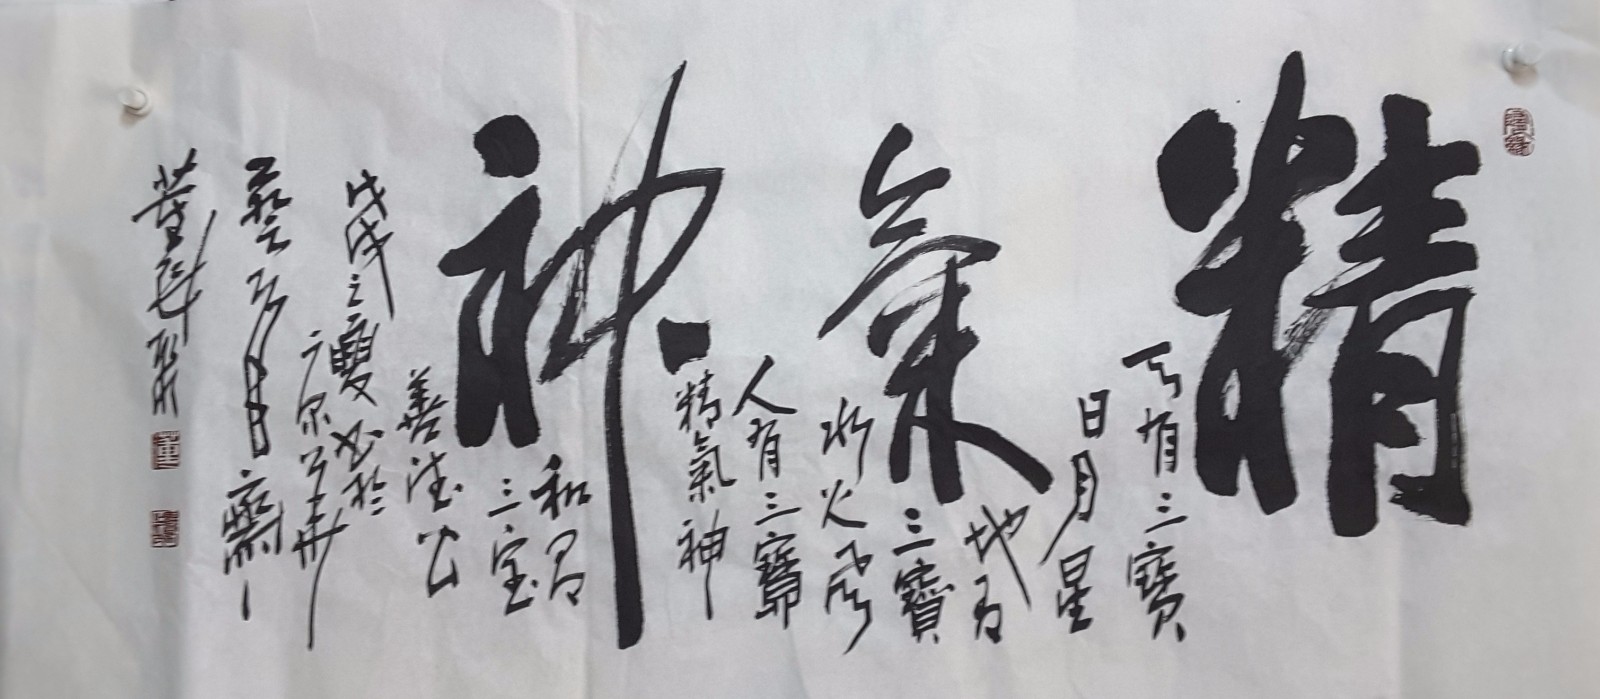 精氣神
天有三寶
日月星
地有
三寶
水火風
人有三寶
精氣神
和為
三宝
善法公
戊戌之夏書於
京華
藝
齋
董